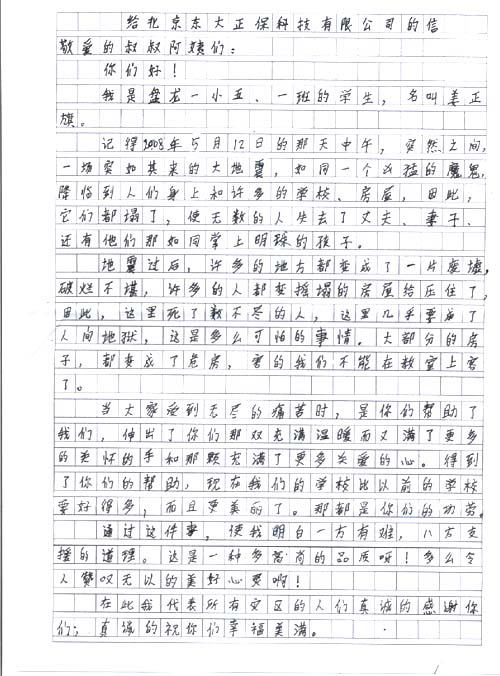 给北京东大正保科技有限公司的信
敬爱的叔叔阿姨们：
你们好！
我是盘龙一小五、一班的学生，名叫姜正
旗。
记得2008年5月12日的那天中午，突然之间，
一场突如其来的大地震，如同一个凶猛的魔鬼，
降临到人们身上和许多的学校、房屋，因此，
它们都塌了，使无数的人失去了丈夫、妻子、
还有他们那如同掌上明珠的孩子。
地震过后，许多的地方都变成了一片废墟，
破烂不堪，许多的人都变摇塌的房屋给压住了，
因此，这里死了数不尽的人，这里几乎要成了
人间地狱，这是多么可怕的事情。大部分的房
子，都变成了危房，害的我们不能在教室上客
了。
当大家受到无尽的痛苦时，是你们帮助了
我们，伸出了你们那双充满温暖而又满了更多
的关怀的手和那颗充满了更多关爱的心。得到
了你们的帮助，现在我们的学校比以前的学校
要好得多，而且更美丽了。那都是你们的功劳。
通过这件事，使我明白一方有难，八方支
援的道理。这是一种多高尚的品质呀！多么令
人赞叹无以的美好心灵啊！
在此我代表所有灾区的人们真诚的感谢你
们；真诚的祝你们幸福美满。